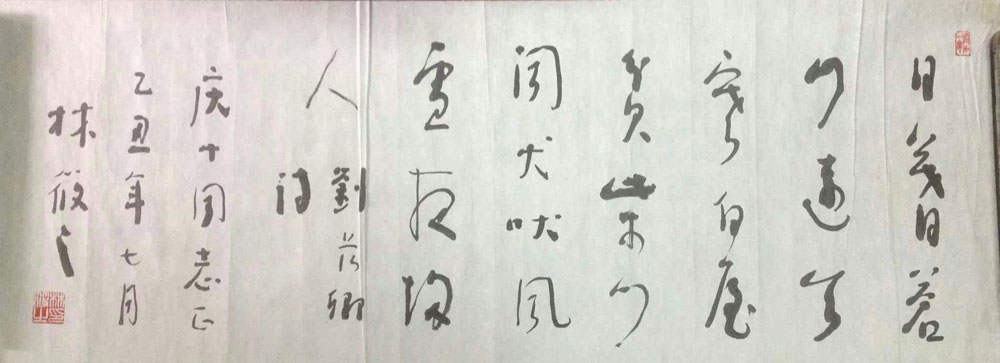 日暮苍
山遠天
寒白屋
贫柴门
闻犬吠风
雪夜归
人
劉长卿
诗
庆十同志正
乙丑年七月
林筱之